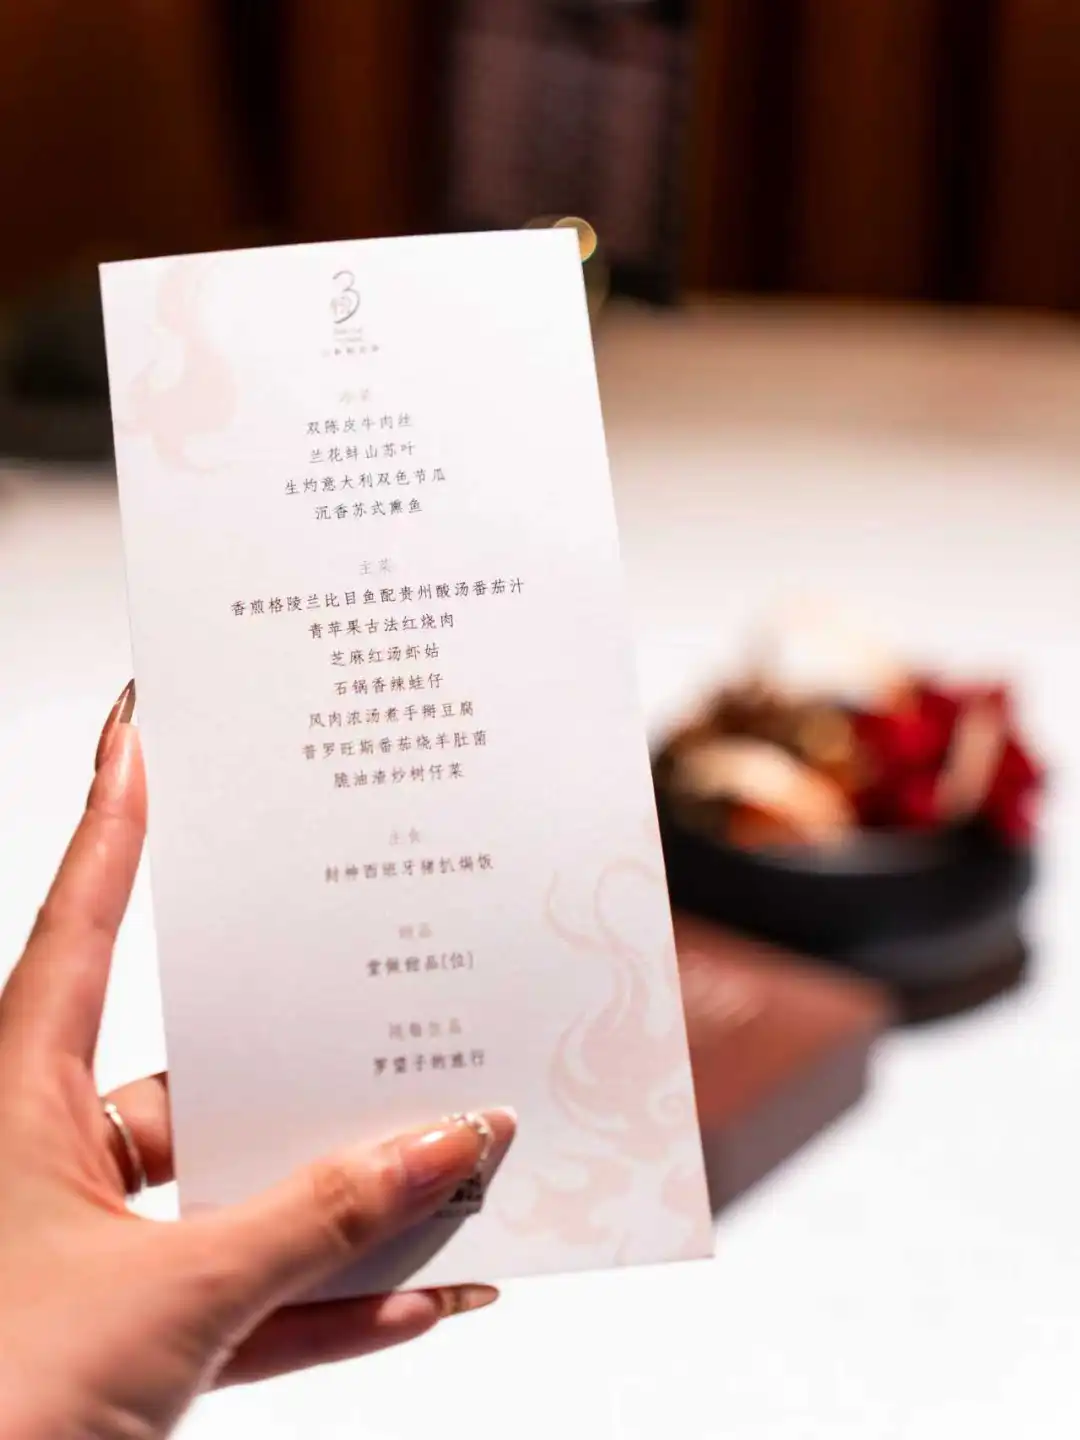 双陈皮牛肉丝
兰花鲜山苏叶
生灼意大利双色节瓜
沉香苏式熏鱼
主菜
香煎格陵兰比目鱼配贵州酸汤番茄汁
青苹果古法红烧肉
芝麻红汤虾姑
石锅香辣蛙仔
风肉浓汤煮手掰豆腐
普罗旺斯番茄烧羊肚菌
脆油渣炒树仔菜
主食
封神西班牙猪扒焗饭
甜品
堂做甜品(位)
罗望子的旅行